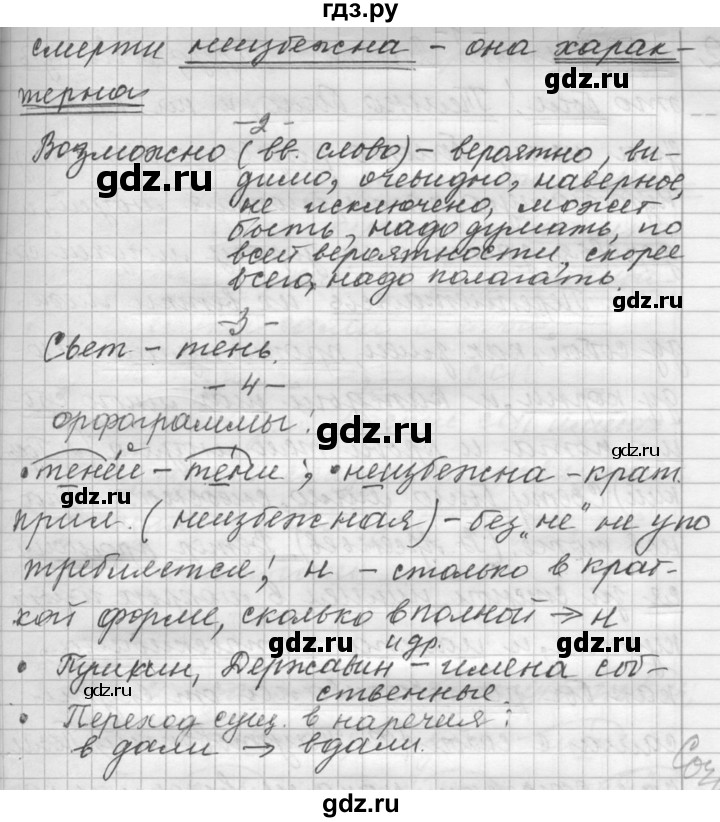 гдз.ру
смерти неизбежна – она харак-
терна
gdz.ru
gdz.ru
– 2 –
Возможно (вв. слово) – вероятно, ви-
gdz.ru
димо, очевидно, наверное,
не исключено, может
быть, надо думать, по
всей вероятности, скорее
всего, надо полагать.
gdz.ru
– 3 –
Свет – тень.
– 4 –
gdz.ru
орфограммы:
gdz.ru
• теней – тени; • неизбежна – крат.
прил. (неизбежная) – без „не" не упо
требляется; н – столько в крат-
кой форме, сколько в полной → н
gdz.ru
gdz.ru
и др.
• Пушкин, Державин – имена соб-
ственные.
gdz.ru
• Переход сущ. в наречия:
в дали → вдали.
Соч
gdz.ru
gdz.ru